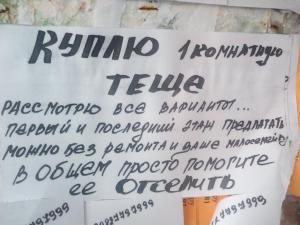 КУПЛЮ 1 КОМНАТНУЮ
ТЕЩЕ
РАССМОТРЮ ВСЕ ВАРИАНТЫ...
ПЕРВЫЙ И ПОСЛЕДНИЙ ЭТАЖ ПРЕДЛАГАТЬ
МОЖНО БЕЗ РЕМОНТА И ДАЖЕ МАЛОСЕМЕЙКУ
В ОБЩЕМ ПРОСТО ПОМОГИТЕ
ЕЕ ОТСЕЛИТЬ